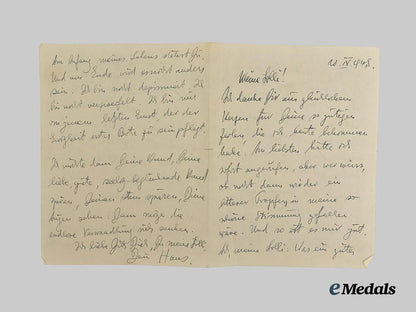 Am Anfang meines Lebens stehst Du.
Und am Ende wird es nicht anders
sein. Ich bin nicht deprimiert. Ich
bin nicht verzweifelt. Ich bin nur
von jenem letzten Ernst der der
Ewigkeit erster Bote zu sein pflegt.
Ich möchte dann Deine Hand, Deine
liebe, gute, seelig beglückende Hand
spüren, Deinen Atem spüren, Deine
Augen sehen. Dann möge die
endlose Verwandlung sich senken.
Ich liebe Dich, Du meine Lolli.
Dein Hans.
10 IV 1948.
Meine Lolli!
Ich danke Dir aus glücklichem
Herzen für Deine so gütigen
Zeilen, die ich heute bekommen
habe. Am liebsten hätte ich
sofort angerufen, aber wer weiss,
ob nicht dann wieder ein
bitterer Tropfen in meine so
schöne Stimmung gefallen
wäre. Und so ist es mir gut.
Ach, meine Lolli: Was ein guter
eMedals